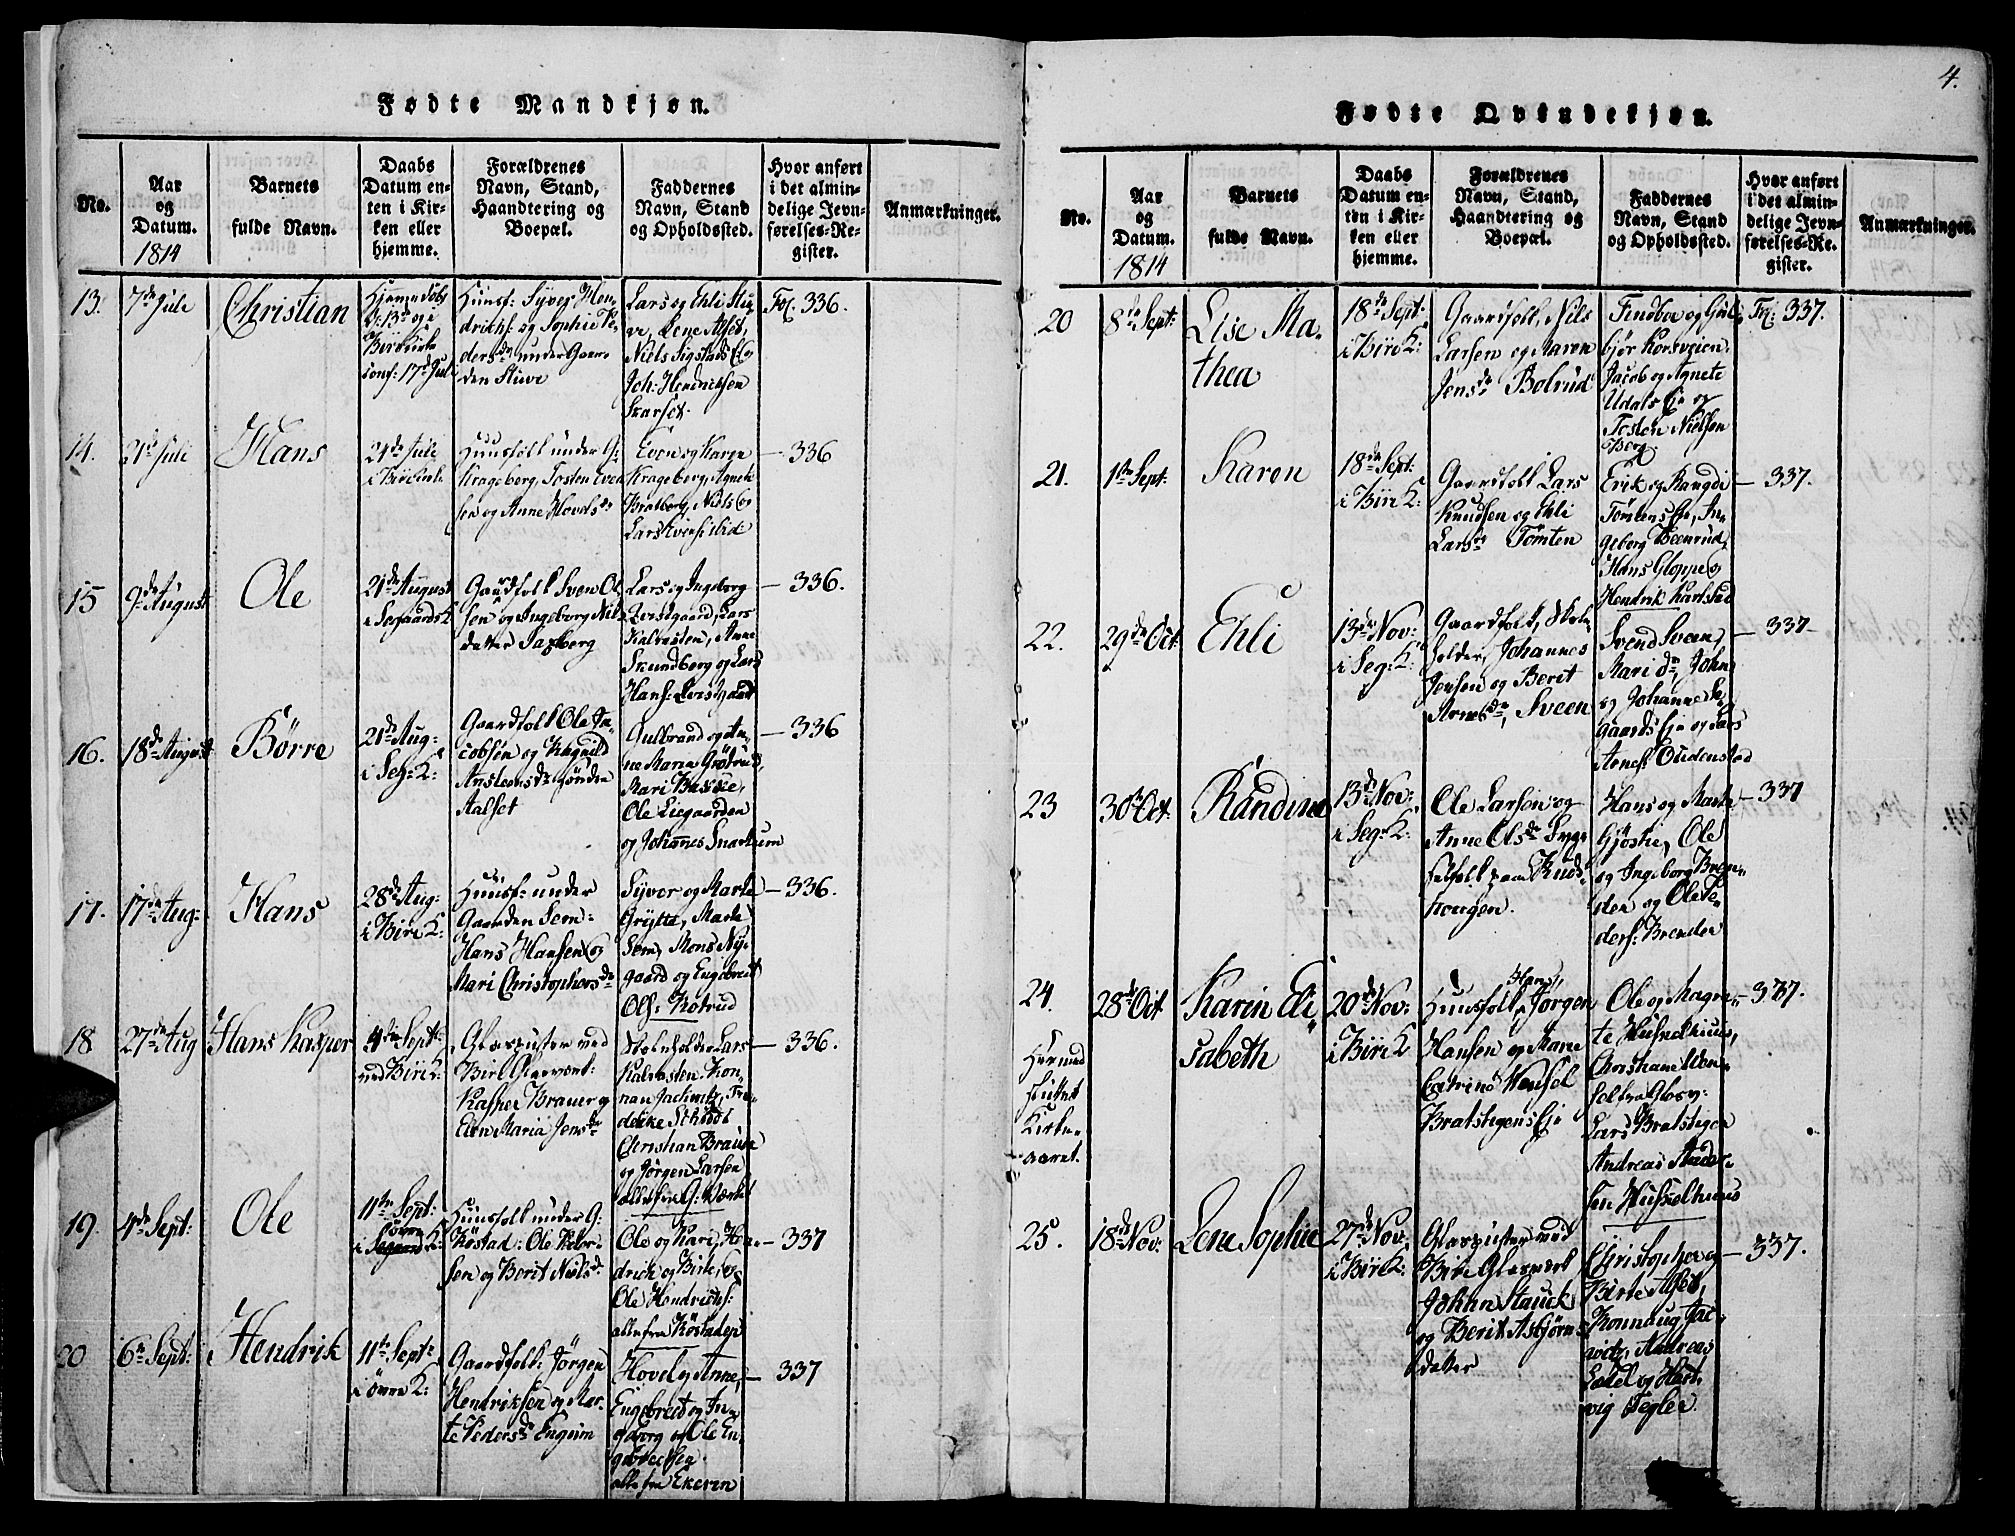 4.
Fødte Mandkjøn.
No.
Aar
og
Datum.
1814
Barnets
fulde Navn.
Daabs
Datum en-
ten i Kir-
ken eller
hjemme.
Forældrenes
Navn, Stand,
Haandtering og
Boepæl.
Faddernes
Navn, Stand
og Opholdssted.
Hvor anført
i det almin-
delige Jevn-
førelses-Re-
gister.
Anmærkninger.
13.
7de Juli
Christian
Huusf: Syver Hen-
drichs: og Sophie Pe-
dersdr under Gaar-
den Stuve
Lars og Ehli Stu-
ve, Lene Alset,
Niels Sigstads E: og
Joh: Hendrichsen
Skarset.
Fol. 336.
14.
21de Juli
Hans
24de Juli
i Biri Kirk.
Huusfolk under G:
Krageberg, Tosten Even
sen og Anne Hovelsdr
Even og Karen
Krageberg, Agnete
Bratberg, Niels og
336
15
9de August
Ole
21de August
i Segaards K
Gaardfolk Sven Ol
sen og Ingeborg Niels
datter Saxberg
Lars og Ingeborg
Kalrasten, Anne
Skundberg og Lars
— 336.
16.
18de August
Børre
21de Aug:
i Seg: K:
Gaardfolk Ole Ja-
cobsen og Ragnild
Aalset
Gulbrand og An-
ne Maria
Ole Liegaarden
og Johannes Snartum
— 336
17.
17de Aug:
Hans
28de Aug:
i Biri K:
Huusf: under
Gaarden Sem:
Hans Hansen og
Mari Christophersdr
Syver og Marte
Grytte, Marte
Sem, Mons Ny-
gaard og Engebret
Ols: Røstrud
— 336.
18
27de Aug
Hans Kasper
4de Sept:
ved Biri K:
Glaspuster ved
Biri Glasværk:
Kasper Brauer og
Elen Maria Jensdr
Lars
Kalrasten,
Christian Brauer
og Jörgen Larsen
alle fra G: Værket
— 336.
19.
4de Sept:
Ole
11te Sept:
i övre K:
Huusfolk under G:
Köstad: Ole Peder-
sen og Berit Nielsdr
Ole og Kari, Hen-
drick og Birte, og
Ole Hendrichs:
alle fra Köstadep
— 337
20
6te Sept:
Hendrik
11te Sept:
i övre K:
Gaardfolk: Jörgen
Hendriksen og Mar-
te Pedersdr Engum
Hovel og Anne,
Engebret og In-
geborg og Ole En-
gebretsen
alle fra Ekeren
— 337
Fødte Qvindekjøn.
No.
Aar
og
Datum.
1814
Barnets
fulde Navn.
Daabs
Datum en-
ten i Kir-
ken eller
hjemme.
Forældrenes
Navn, Stand,
Haandtering og
Boepæl.
Faddernes
Navn, Stand
og Opholdssted.
Hvor anført
i det almin-
delige Jevn-
førelses-Re-
gister.
Anmærkninger.
20
8de Sept:
Lise Ma-
thea
18de Sept:
i Biri K:
Gaardfolk, Nils
Larsen og Maren
Jensdr Bolrud
Findboe og Gul-
björ Korsveien.
Jacob og Agnete
Udals Eje og
Tosten Nielsen
Berg
Fol: 337.
21.
1te Sept:
Karen
18de Sept:
i Biri K:
Gaardfolk Lars
Knudsen og Ehli
Larsdr Tömten
Erik og Rangdi
Tömtens Eje, In-
geborg Veenrud,
Hans Gloppe og
Hendrik Karlstad
— 337.
22.
29de Oct
Ehli
13de Nov:
i Seg: K:
Gaardfolk, Skole-
holder, Johannes
Jensen og Berit
Arnesdr, Sveen
Svend Sveen,
Mari do, John
og Johanne Se-
gaards Eje og Lars
Arnes: Oudenstad
— 337
23
30te Oct.
Randine
13de Nov:
i Seg: K:
Ole Larsen og
Anne Olsdr
Hans og Marte
Gjöstie, Ole
og Ingeborg Bren-
den og Ole Pe-
ders: Brenden
— 337
24.
Hermed
sluttet
Kirke-
aaret.
28de Oct
Karin Eli
sabeth
20de Nov:
i Biri K
Huusfolk, Hans, Jörgen
Hansen og Maren
Catrine Wensel
Bratstigens Eje
Ole og Magre-
te
Christiane Wen-
sel fra Glasv:
Lars Bratstigen
Andreas Ander-
sen
— 337.
25.
18de Nov:
Lene Sophie
27de Nov:
i Biri K:
Glaspuster ved
Biri Glasværk
Johan Stauck
og Berit Asbjörns
datter
Christopher og
Birte Alset,
witz, Andreas
vig Tegler
— 337.